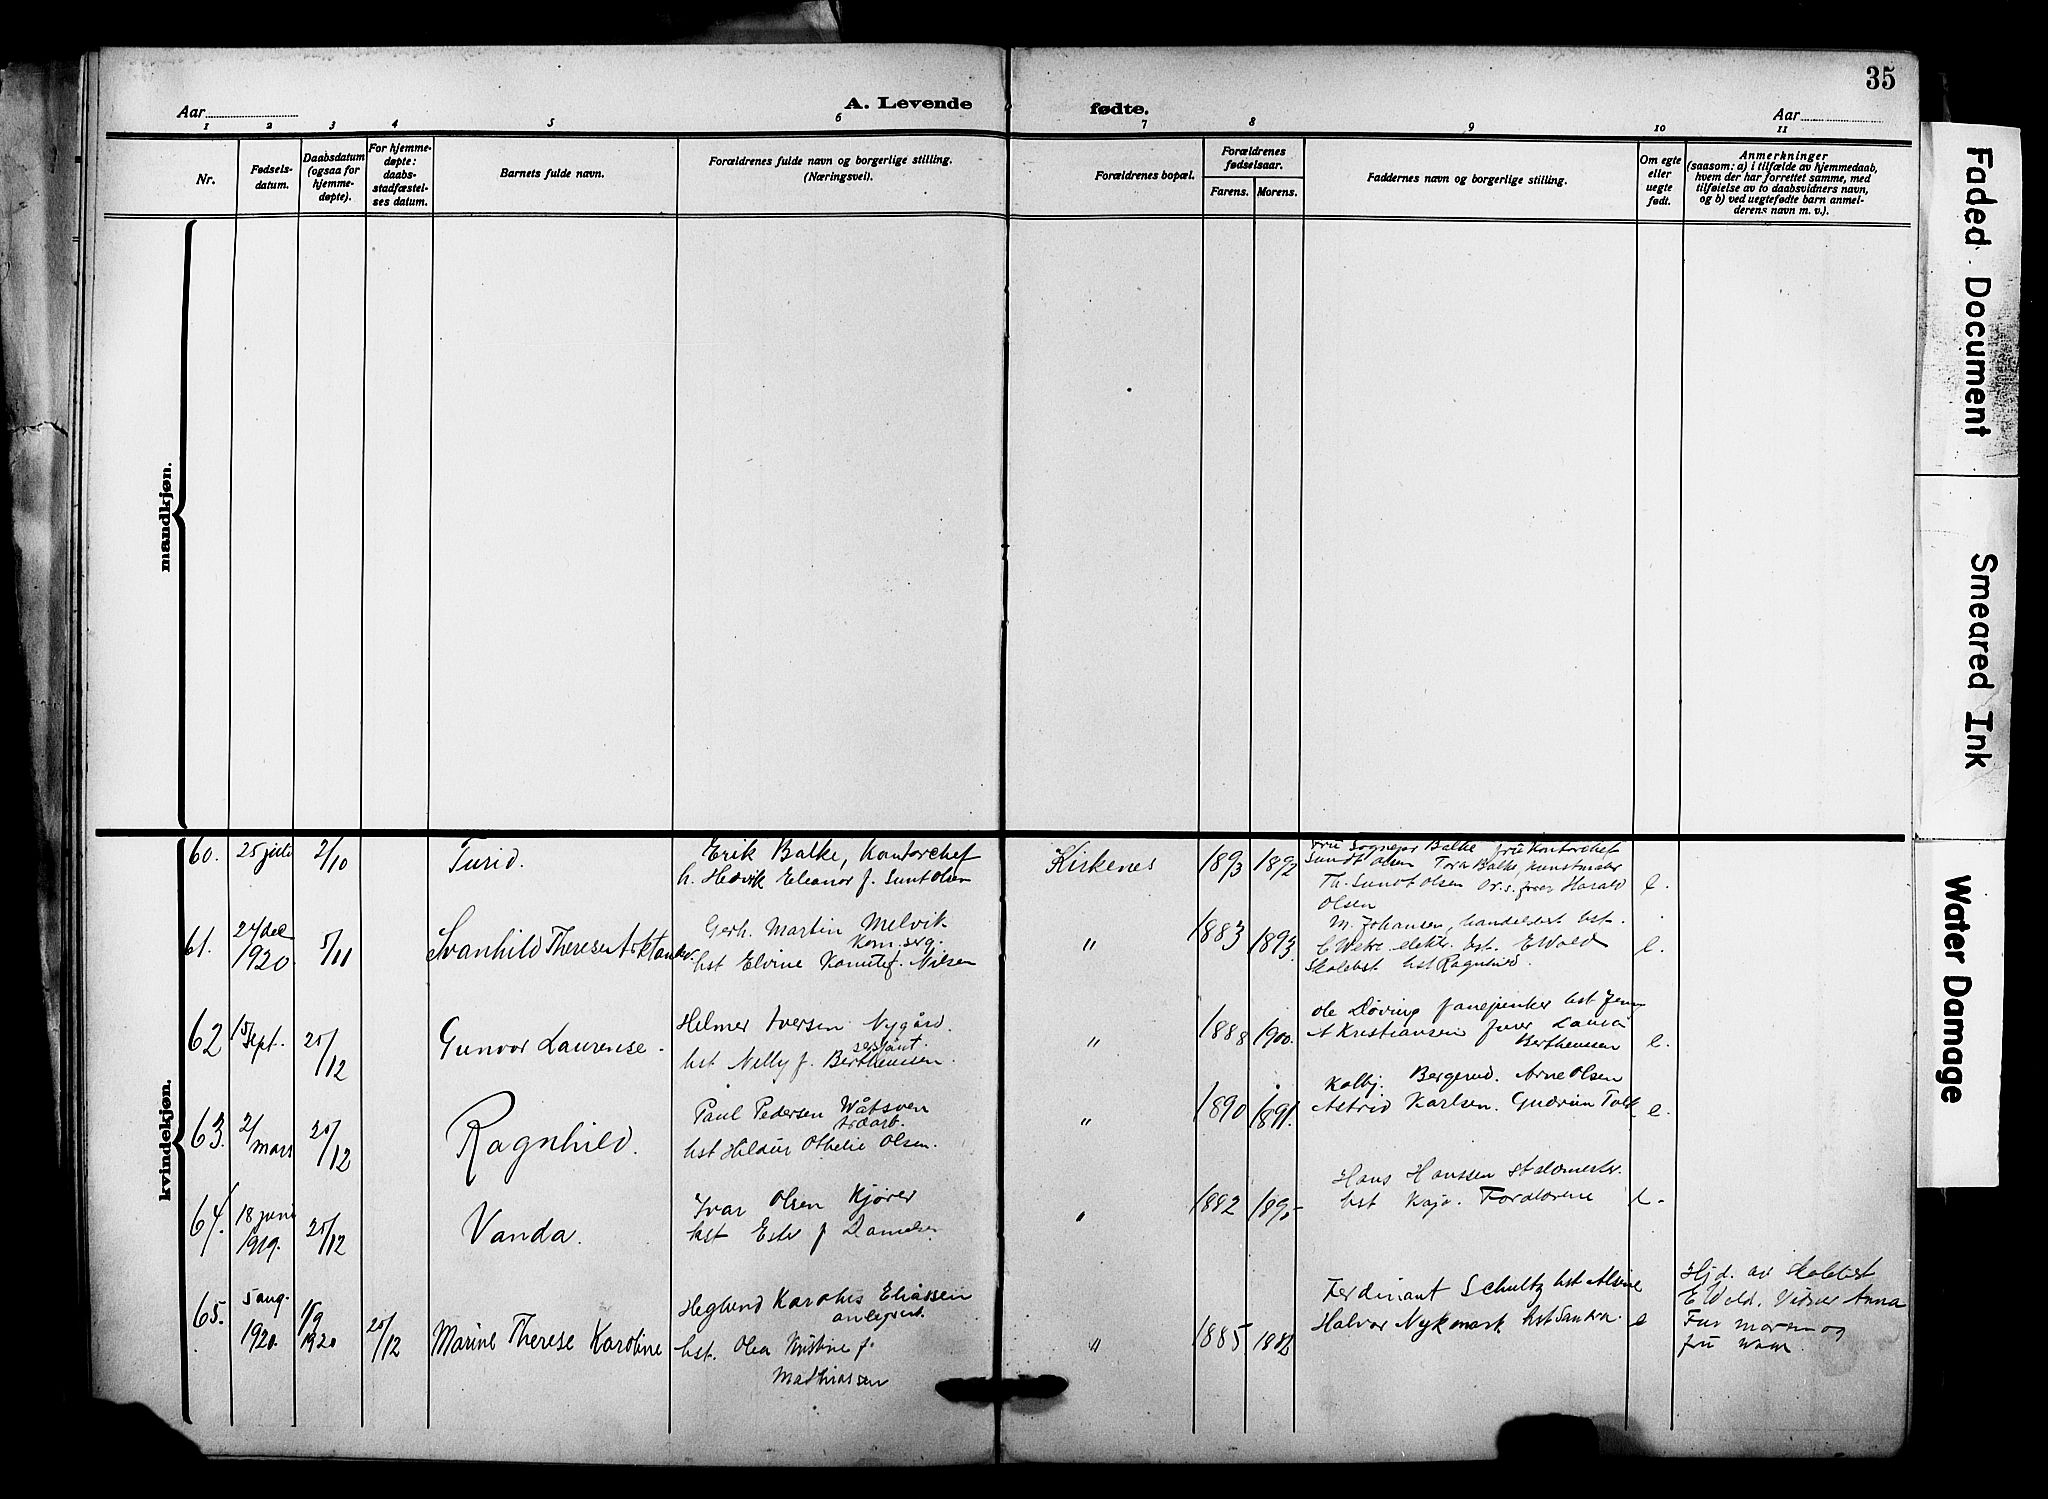 35
Aar
A. Levende fødte.
Aar
1 2 3 4 5 6 7 8 9 10 11
Nr.
Fødsels-
datum.
Daabsdatum
(ogsaa for
hjemme-
døpte).
For hjemme-
døpte:
daabs-
stadfæstel-
ses datum.
Barnets fulde navn.
Forældrenes fulde navn og borgerlige stilling.
(Næringsvei).
Forældrenes bopæl.
Forældrenes
fødselsaar.
Farens. Morens.
Faddernes navn og borgerlige stilling.
Om egte
eller
uegte
født.
Anmerkninger
(saasom: a) i tilfælde av hjemmedaab,
hvem der har forrettet samme, med
tilføielse av to daabsvidners navn,
og b) ved uegtefødte barn anmel-
derens navn m. v.).
mandkjøn.
kvindekjøn.
60. 25 juli 2/10 Turid. Erik Balke, Kontorchef Kirkenes 1893 1892
h. Hedvik Eleanor f. Suntolsen
Fru Sogneprs Balke fru Kontorchef
Sundt Olsen Tora Balke, kunstmaler
Th. Sundt Olsen Harald e.
Olsen
61. 24 dec 1920 5/11 Svanhild Therese Gerh. Martin Melvik " 1883 1893.
hst Elvine f. Nilsen
M. Johansen, hst.
elektr. hst. E Wold e.
hst Ragnhild.
62 15 Sept. 25/12 Gunvor Laurense. Helmer Iversen Nygård. " 1888 1900.
sersjant.
hst Nelly f. Bertheussen.
Ole Døving hst
A Kristiansen Laura
Bertheussen e.
63. 2/mars 25/12 Ragnhild. Paul Pedersen " 1890 1891.
hst Hildur Othelie Olsen.
Kolbj. Bergerud. Arne Olsen
Astrid Karlsen. Gudrun e.
64. 18 juni 1919. 25/12 Vanda. Ivar Olsen Kjører " 1882
hst Ester f Danielsen
Hans Hanssen
hst Kaja. Forældrene e.
65. 5 aug. 1920. 15/9 1920 25/12 Marine Therese Karoline Heglund Karolus Eliassen " 1885
hst. Olea Kristine f.
Mathiassen
Ferdinant Schultz hst
Halvor Nykmark hst Sandra. e
Hjd. av
E Wold. Vidner Anna
og
fru
Faded Document
Smeared Ink
Water Damage